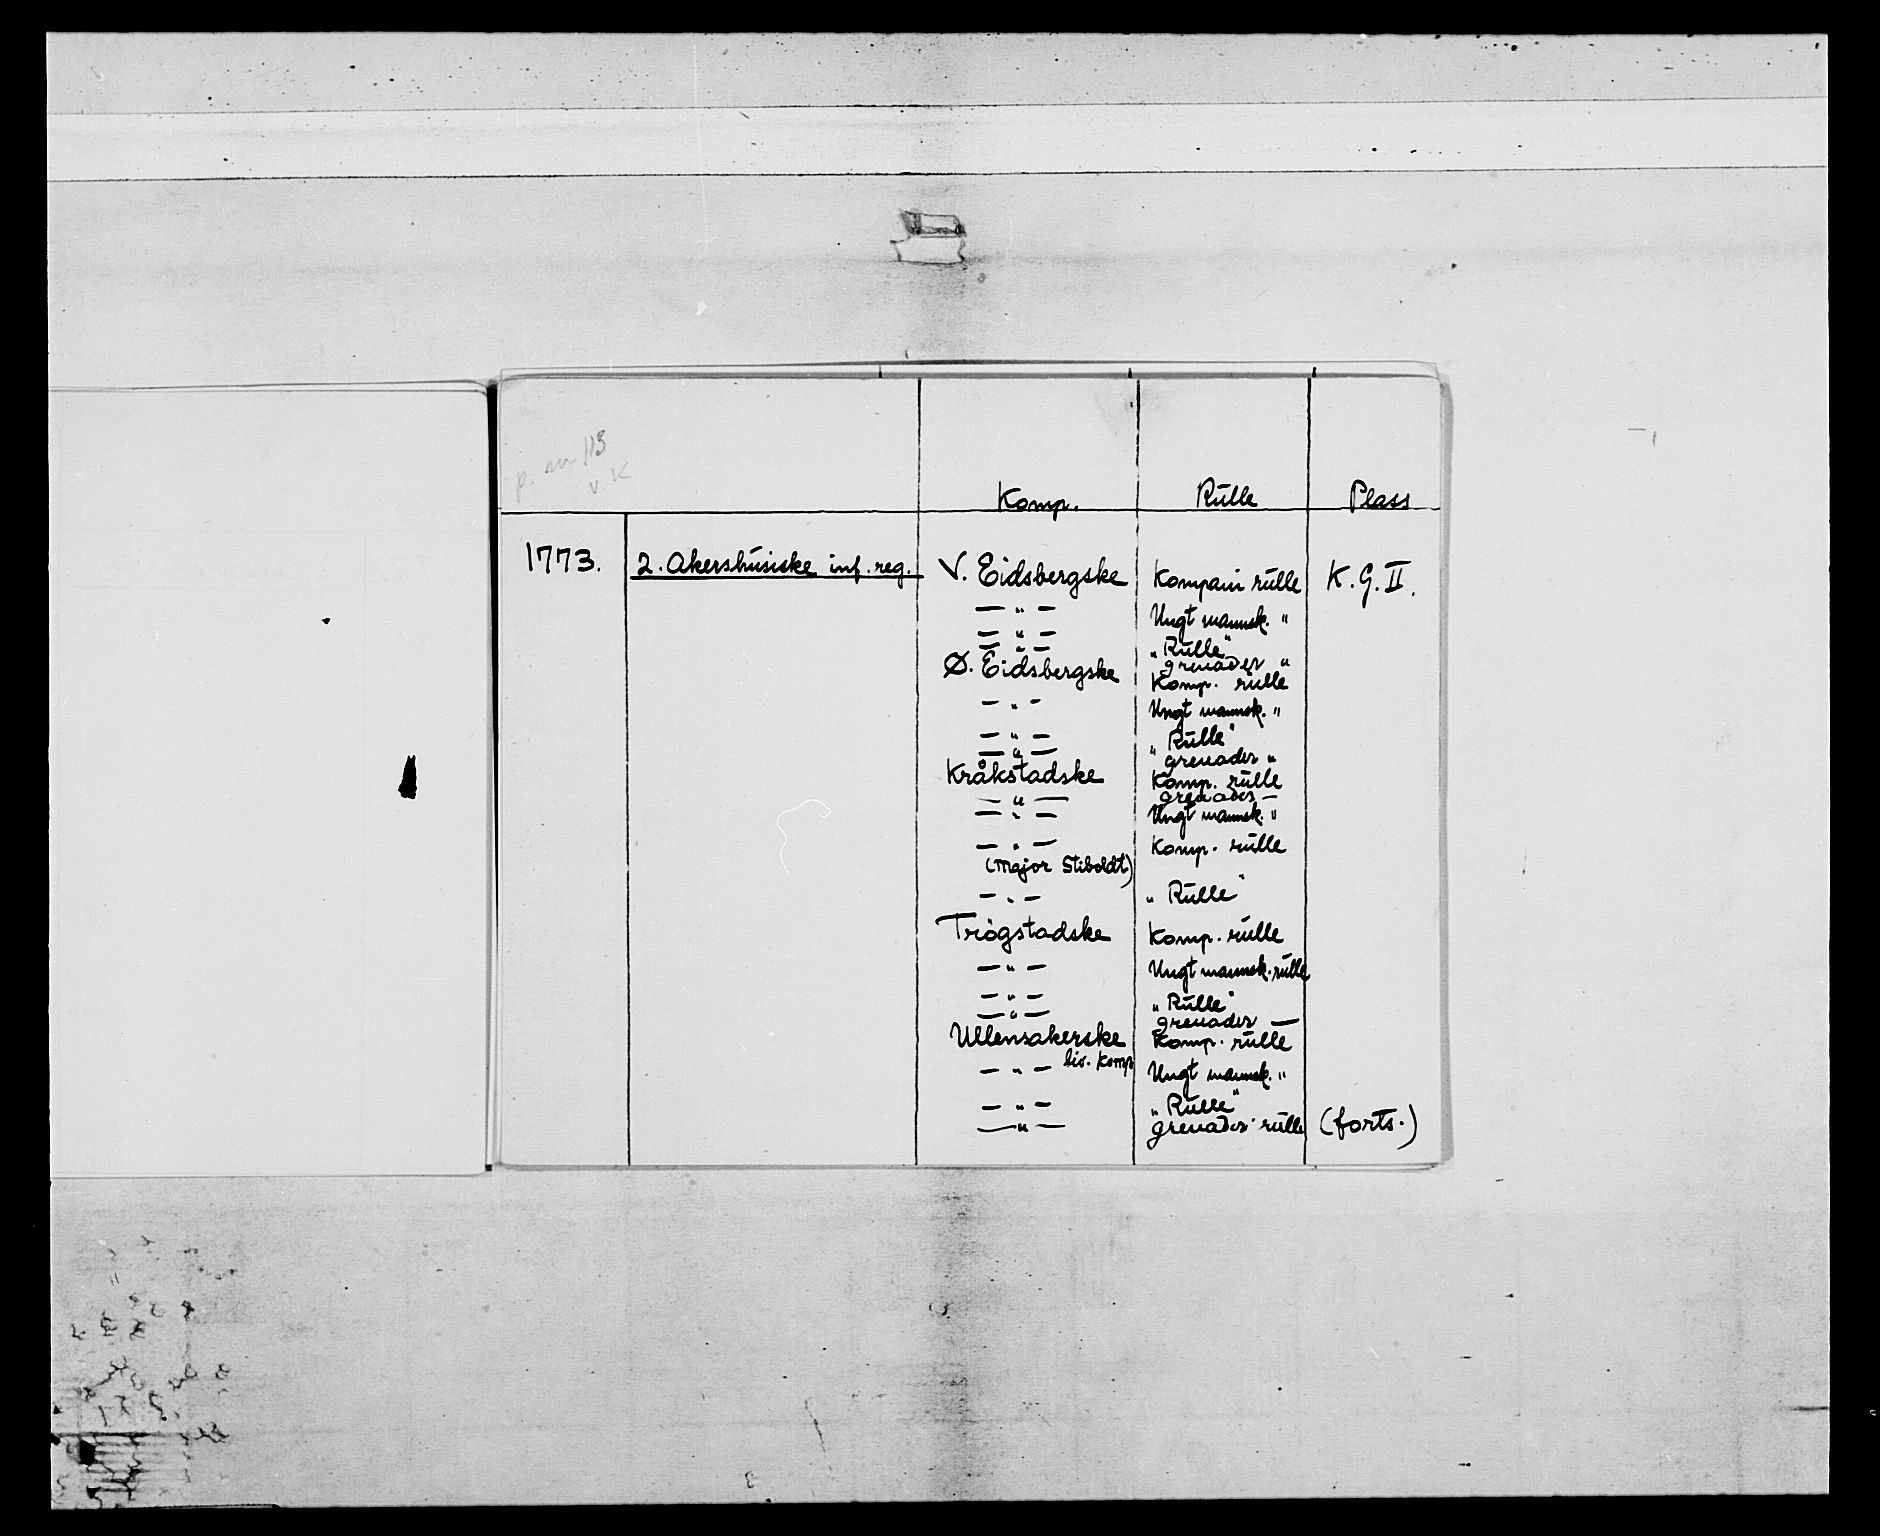 113
Komp. Rulle Plass
1773. 2. Akershusiske inf. reg. V. Eidsbergske Kompani rulle K.G. II.
— " — Ungt mannsk. "
— " — "Rulle"
— " — grenader "
Ø. Eidsbergske Komp. rulle
— " — Ungt mannsk. "
— " — "Rulle"
— " — grenader "
Kråkstadske Komp. rulle
— " — grenader —
— " — Ungt mannsk. "
— " — Komp. rulle
(Major Stiboldt)
— " — "Rulle"
Trögstadske Komp. rulle
— " — Ungt mannsk. rulle
— " — "Rulle"
— " — grenader —
Ullensakerske Komp. rulle
liv. Komp
— " — Ungt mannsk. "
— " — "Rulle"
— " — grenader rulle (forts.)